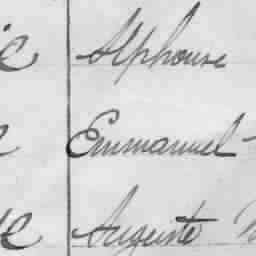 Alphonse
Emmanuel
Auguste